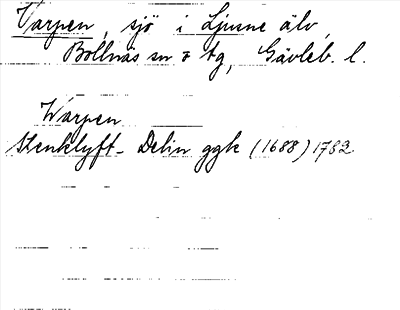 Varpen, sjö i Ljusne älv,
Bollnäs sn o tg, Gävleb. l.
Warpen
Stenklyft - Delin ggk (1688) 1782